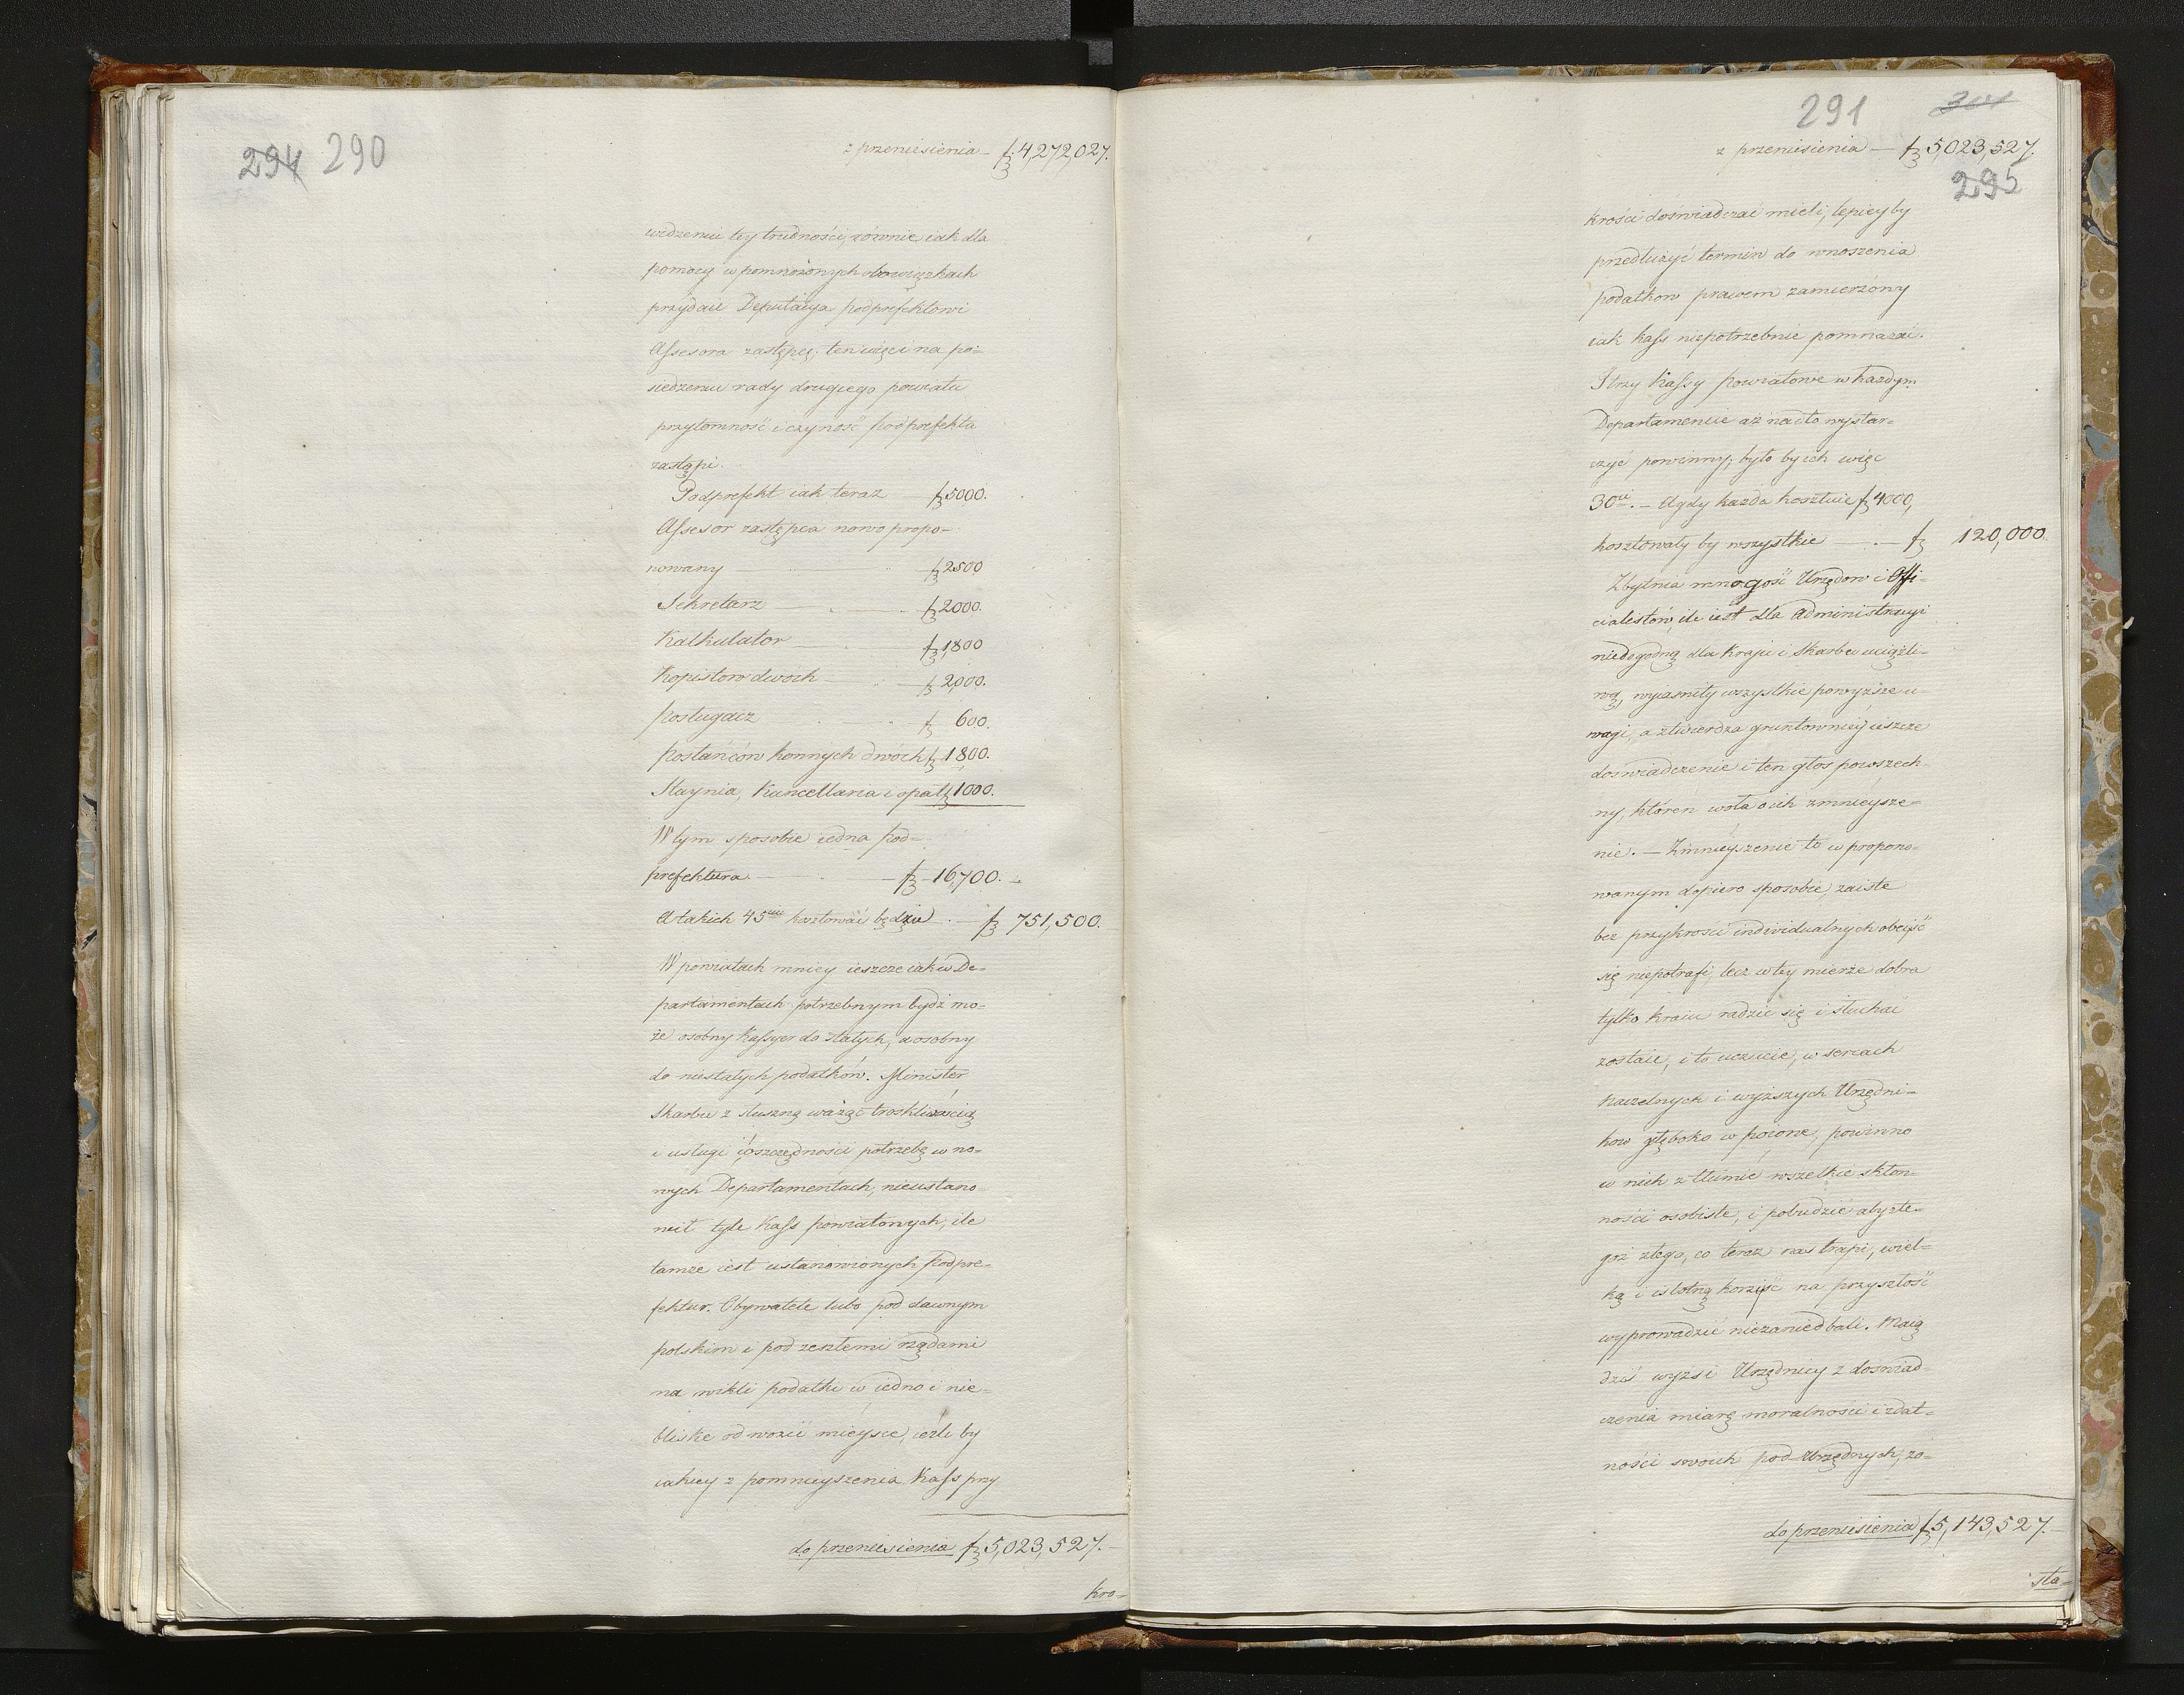 294 290
z przeniesienia — fz 4,272,027.
widzeniu tey trudności, równie iak dla
pomocy w pomnożonych obowiązkach
przydaie Deputacya podprefektowi
Assesora zastępcę; ten więc i na po=
siedzeniu rady drugiego powiatu
przytomność i czyność podprefekta
zastąpi.
Podprefekt iak teraz — fz 5000.
Assesor zastępca nowo propo=
nowany — fz 2500
Sekretarz — fz 2000.
Kalkulator — fz 1,800
Kopistow dwóch — fz 2,000.
Posługacz — fz 600.
Posłańców konnych dwóch fz 1,800.
Staynia, Kancellaria i opał fz 1000.
W tym sposobie iedna pod=
prefektura — fz 16,700. —
A takich 45 kosztować będzie — fz 751,500.
W powiatach mniey ieszcze iak w De=
partamentach potrzebnym bydź mo=
że osobny Kassyer do stałych, a osobny
do niestałych podatków. Minister
Skarbu z słuszną ważąc troskliwością
i usługi i oszczędności potrzebę w no=
wych Departamentach, nieustano=
wił tyle Kass powiatowych, ile
tamże iest ustanowionych Podpre=
fektur. Obywatele lubo pod dawnym
polskim i pod zeszłemi rządami
na wikli podatki w iedno i nie=
bliskie odwozić mieysce, ieźli by
iakiey z pomnieyszenia Kass przy
do przeniesienia fz 5,023,527. —
kro=
291 301
z przeniesienia — fz 5,023,527.
295
krości doświadczać mieli, lepiey by
przedłużyć termin do wnoszenia
podatkow prawem zamierzony
iak kass niepotrzebnie pomnażać.
I trzy Kassy powiatowe w każdym
Departamencie aż nadto wystar=
czyć powinny; było by ich więc
30. — A gdy każda kosztuie fz 4000,
kosztowały by wszystkie — fz 120,000.
Zbytnia mnogość Urzędow i Offi=
cialistów, ile iest dla Administracyi
niedogodną dla Kraju i Skarbu uciążli=
wą, wyiaśniły wszystkie powyższe u=
wagi, a ztwierdza gruntowniey ieszcze
doświadczenie i ten głos powszech
ny, któren woła o ich zmnieysze=
nie. — Zmnieyszenie to w propono=
wanym dopiero sposobie, zaiste
bez przykrości individualnych obeyść
się niepotrafi, lecz w tey mierze dobra
tylko kraiu radzić się i słuchać
zostaie, i to uczucie, w sercach
Naczelnych i wyższych Urzędni=
kow głęboko wpoione, powinno
w nich ztłumić wszelkie skłon=
ności osobiste, i pobudzić aby zte=
goż złego, co teraz nas trapi, wiel=
ką i istotną korzyść na przyszłość
wyprowadzić niezaniedbali. Maią
dziś wyżsi Urzędnicy z doświad=
czenia miarę moralności i zdat=
ności swoich pod Urzędnych, zo=
do przeniesienia fz 5,143,527. —
sta=